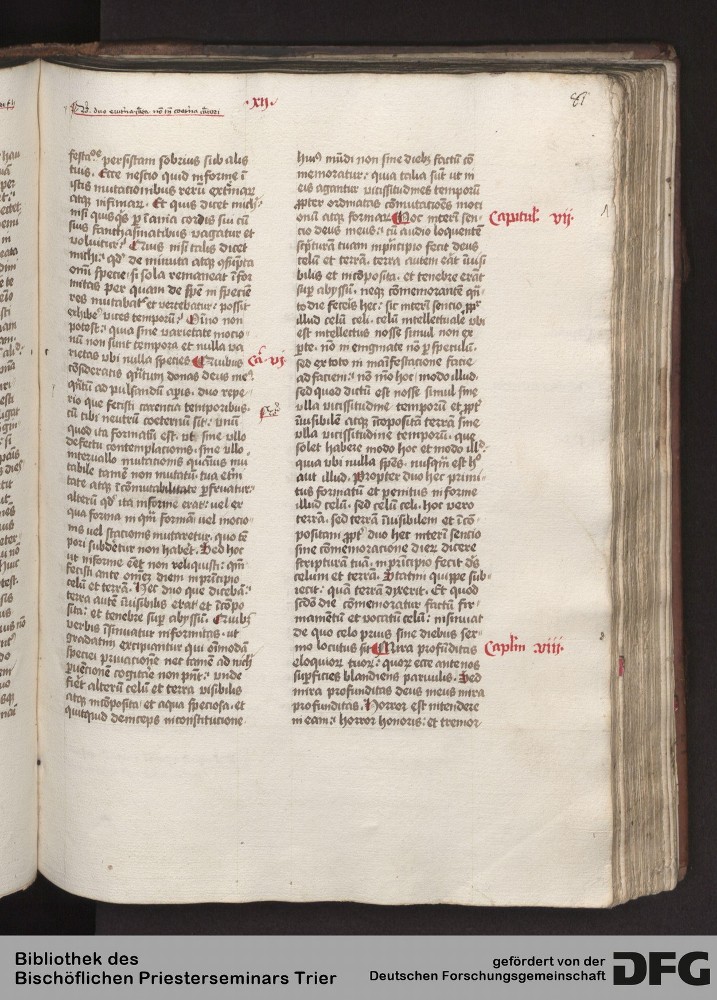 ·xij·
87
festa persistam sobrius sub aliis
tuis. Ecce nescio quid informe ī
istis mutationibus rerū extimarꝫ
atqꝫ infimarꝫ. Et quis dicet michi
nisi quisqs ꝑ īania cordis sui cū
suis fantasmatibus vagatur et
voluitur? Quis nisi talis dicet
michi: qd' de minuta atqꝫ ꝯsūpta
omī specie: si sola remaneat īfor
mitas per quam de spē in speciē
res mutabat' et vertebatur: possit
exhibē vices temporū? Oīno non
potest: quia sine varietate motio-
nū non sunt tempora et nulla va-
rietas vbi nulla species Quibus
Ca vj
ꝯsideratis qūtum donas deus me9
qūtū ad pulsandū aꝑis. duo repe-
rio que fecisti carentia temporibus.
cū tibi neutrū coeternū sit: vnū
quod ita formatū est. vt sine vllo
defectu contemplationis. sine vllo
intervallo mutationis quāuis mu
tabile tamē non mutatū. tua etn̄i
tate atqꝫ īcōmutabilitate ꝑfruatur.
alterū qd' ita informe erat: vel ex
qua forma in qm̄ formā vel motio-
nis vel stationis mutaretur. quo tē
pori subdētur non habēt. Sed hoc
vt informe eēt non reliquisti: qm̄
fecisti ante omēz diem in prīcipio
celū et terrā. Hec duo que dicebā.
terra autē īuisibilis erat et īcōpo
sita: et tenebre suꝑ abyssū. Quibꝫ
verbis īsinuatur informitas. vt
gradatim excipiantur qui oīmodā
speciei priuationē nec tamē ad nichil
ꝑuētionē cogitare non pn̄t: vnde
fiēt alterū celū et terra visibilis
atqꝫ cōposita: et aqua speciosa. et
quitquid deinceps in constitutione
huiꝰ mūdi non sine diebꝫ factū cō
memoratur: quia talia sūt vt in
eis agantur vicissitudines temporū
ꝓpter ordinatas cōmutatōes moti
onū atqꝫ formarꝫ Hoc interī sen-
Capitul' vij.
tio deus meus: cū audio loquentē
scpturā tuam In principio fecit deus
celū et terrā. terra autem eāt īuisi
bilis et īcōposita. et tenebre erāt
suꝑ abyssū. neqꝫ comemorantē qn̄
to die feceris hec: sic interī sentio ꝓpt'
illud celū celi. celū intellectuale vbi
est intellectus nosse simul non ex
ꝑte. nō in enigmate nō ꝑ speculū.
sed ex toto in manifestatione facie
ad faciem: nō mō hoc modo illud.
sed quod dictū est nosse simul sine
vlla vicissitudine temporū et ꝓpt'
īuisibilē atqꝫ īcōpositā terrā sine
vlla vicissitudine temporū. que
solet habere modo hoc et modo ill'.
quia vbi nulla spēs. nusqm̄ est hoc
aut illud. Propter duo hec primi-
tus formatū et penitus informe
illud celū. sed celū celi. hoc vero
terrā. sed terrā īuisibilem et īcō-
positam ꝓpt' duo hec interī sentio
sine cōmemoratione dierꝫ dicere
scripturā tuā. In principio fecit ds̄
celum et terrā. Statim quippe sub-
iecit: quā terrā dixerit. Et quod
scdo die cōmemoratur factū fir-
mamētū et vocatū celū: īsinuat
de quo celo prius sine diebus ser-
mo locutus sit Mira profūditas
Caplm viii.
eloquiorꝫ tuorꝫ: quorꝫ ecce ante nos
suꝑficies blandiens paruulis. Sed
mira profunditas deus meus mira
profunditas. Horror est intendere
in eam: horror honoris: et tremor
Bibliothek des
Bischöflichen Priesterseminars Trier
gefördert von der
Deutschen Forschungsgemeinschaft
DFG